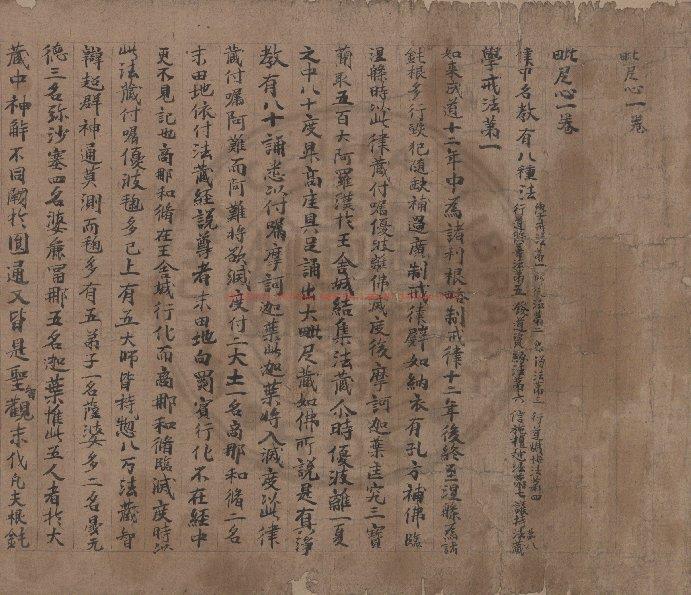 毗尼心一卷
毗尼心一卷
律中名教有八種法
行道除障法第五
學戒法第一
如來成道十二年中為諸利根略制戒律十二年後終至涅槃為諸
鈍根多行毀犯隨缺補過廣制戒律譬如納衣有孔方補佛臨
涅槃時以此律藏付囑優波離佛滅度後摩訶迦葉
蘭取五百大阿羅漢於王舍城結集法藏尒時優波離一夏
之中八十度昇高座具足誦出大毗尼藏如佛所說是有
教有八十誦悉以付囑摩訶迦葉此迦葉將入滅度以此律
藏付囑阿難而阿難將欲滅度付二大士一名商那和脩二名
末田地依付法藏經說尊者末田地向罽賓行化不在經中
更不見記也商那和脩在王舍城行化而商那和脩臨滅度時以
此法藏付囑優波毱多已上有五大師皆持惣八万法藏智
辯超群神通莫測而毱多有五弟子一名薩婆多二名曇无
德三名弥沙塞四名婆麁富那五名迦葉惟此五人者於大
藏中神解不同闕於圓通又皆是聖智觀末代凡夫根鈍